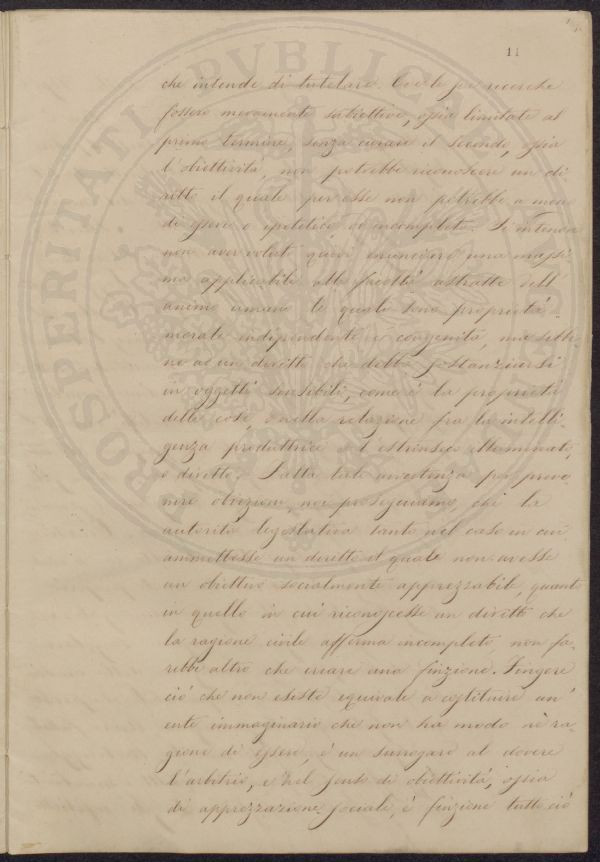 11
che intende di tutelare. Ove le sue ricerche
fossero meramente subiettive, ossia limitate al
primo termine, senza curare il secondo, ossia
l'obiettività, non potrebbe riconoscere un di-
ritto il quale per esse non potrebbe a meno
di essere o ipotetico od incompleto. Si intenda
non aver voluto quivi enunciare una massi-
ma applicabile alle facoltà astratte dell'
animo umano le quali sono proprietà
morali indipendenti e congenite, ma sibbe-
ne ad un diritto che debba sostanziarsi
in oggetti sensibili, come è la proprietà
delle cose, nella relazione fra la intelli-
genza produttrice l'estrinseco
o diretto. Fatta tale avvertenza per preve-
nire obiezioni, noi proseguiamo, che la
autorità legislativa tanto nel caso in cui
ammettesse un diritto il quale non avesse
un obiettivo socialmente apprezzabile, quanto
in quello in cui riconoscesse un diritto che
la ragione civile afferma incompleto, non fa-
rebbe altro che creare una finzione. Fingere
ciò che non esiste equivale a costituire un'
ente immaginario che non ha modo nè ra-
gione di essere, è un surrogare al dovere
l'arbitrio, e nel senso di obiettività, ossia
di apprezzazione sociale, è finzione tutto ciò
PVBLICAE
PROSPERITATI